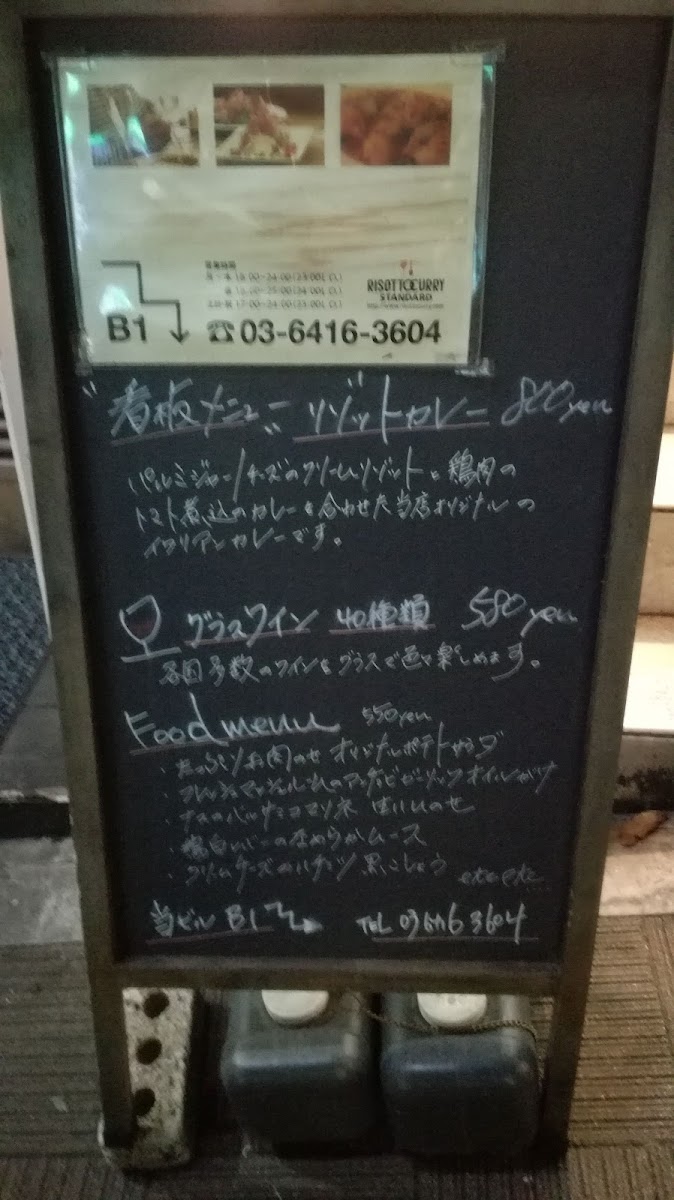 営業時間
B1
RISOTTOCURRY
STANDARD
☎03-6416-3604
"看板メニュー" リゾットカレー 800yen
パルミジャーノチーズのクリームリゾットと鶏肉の
トマト煮込のカレーを合わせた当店オリジナルの
イタリアンカレーです。
グラスワイン 40種類 580yen
各国多数のワインをグラスで色々楽しめます。
Food menu 550yen
・たっぷりお肉のせ オリジナルポテトサラダ
・フレッシュマッシュルームのアンチョビガーリックオイルがけ
・ナスのバルサミコマリネ 生ハムのせ
・鶏白レバーのなめらかムース
・クリームチーズのハチミツ 黒こしょう etc etc
当ビル B1 TEL 03 6416 3604